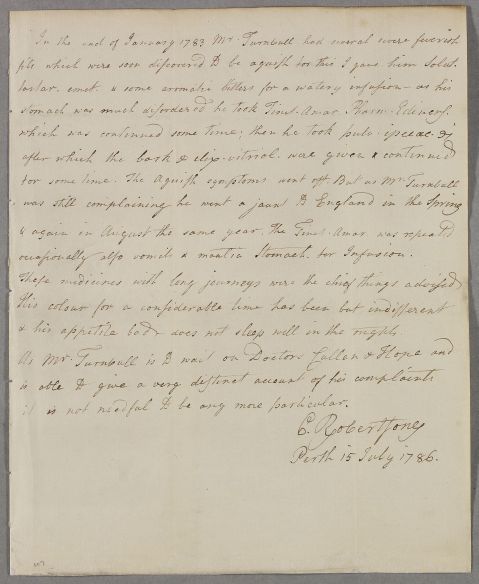 In the end of January 1783 Mr. Turnbull had several severe feverish
fits which were soon discovered to be aguish for this I gave him Solut.
tartar. emet. & some aromatic bitters for a watery infusion - as his
stomach was much disordered he took Tinct. Amar. Pharm. Edinens.
which was continued some time; then he took pulv. ipecac. ʒj
after which the bark & elix. vitriol. were given & continued
for some time. The Aguish symptoms went off. But as Mr. Turnbull
was still complaining he went a jaunt to England in the Spring
& again in August the same year. The Tinct. Amar. was repeated
occasionally also vomits & Stomach. for Infusion.
These medicines with long journeys were the chief things advised
His colour for a considerable time has been but indifferent
& his appetite bad - does not sleep well in the night.
As Mr. Turnbull is to wait on Doctors Cullen & Hope and
is able to give a very distinct account of his complaints
it is not needful to be any more particular.
C. Robertson
Perth 15 July 1786.